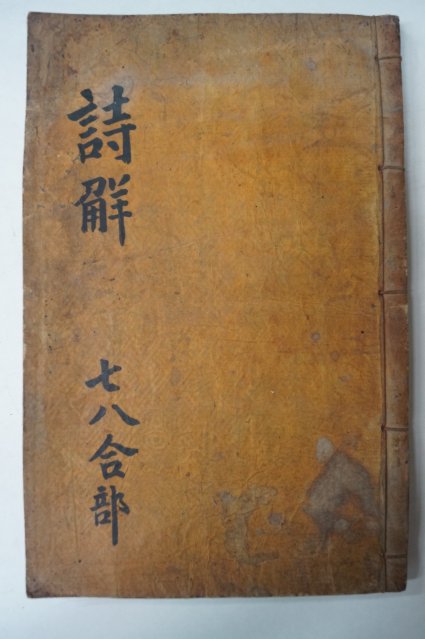 詩觧
七八合部